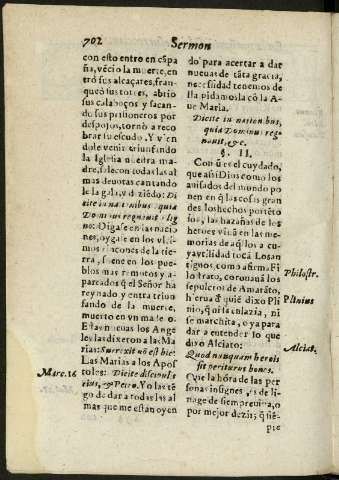 702
Sermon
con esto entro en cãpa
ña, vẽcio la muerte, en
trò sus alcaçares, fran
queò sus torres, abrio
sus calaboços y sacan-
do sus prisioneros por
despojos, tornò a reco
brar su estado. Y vien
dole venir triunfando
la Iglesia nuestra ma-
dre, sale con todas las al
mas deuotas cantando
le la gala, y diziẽdo: Di
cite in nationibus, quia
Dominus regnauit à lig
no: Digase en las nacio
nes, oygase en los vlti
mos rincones de la tie
rra, suene en los pue
blos mas remotos y a-
partados q̃ el Señor ha
reynado y entra triun
fando de la muerte,
muerto en vn madero.
Estas nueuas los Ange
les las dixeron a las Ma
rias: Surrexit nõ est hic:
Las Marias a los Apos
Marc. 16.
toles: Dicite discipulis
eius, & Petro. Yo las tẽ
go de dar a todas las al
mas que me estan oyen
do: para acertar a dar
nueuas de tãta gracia,
necessidad tenemos de
lla pidamosla cõ la A-
ue Maria.
Dicite in nationibus,
quia Dominus reg
nauit, &c.
§. II.
Con q̃ es el cuydado,
que añi Dios como los
auisados del mundo po
nen en q̃ las cosas gran
des los hechos portẽto
sos, las hazañas de los
heroes viuã en las me-
morias de aq̃llos a cu-
ya vtilidad tocã. Losan
tiguos, como afirma Fi
Philostr.
lostrato, coronauã los
sepulcros de Amarãto,
Plinius
hierua de quiẽ dixo Pli
nio, quitũ calaxia, ni
se marchita, o ya para
dar a entender lo que
dixo Alciato:
Alciat.
Quod nunquam herois
sit periturus honos.
Que la hõra de las per
sonas insignes, es de li-
nage de siempreviua, o
por mejor dezir; q̃ siẽ-
pre